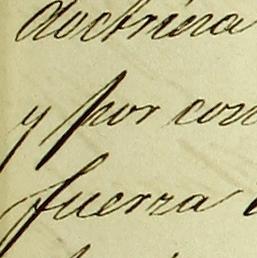 doctrina
y por con
fuerza